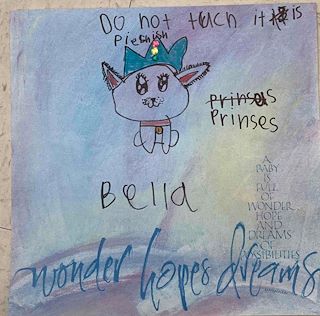 Do not tuch it is
Pleshish
prinses
Prinses
Bella
A
BABY
IS
FULL
OF
WONDER
HOPE
AND
DREAMS
OF
POSSIBILITIES
wonder hopes dreams